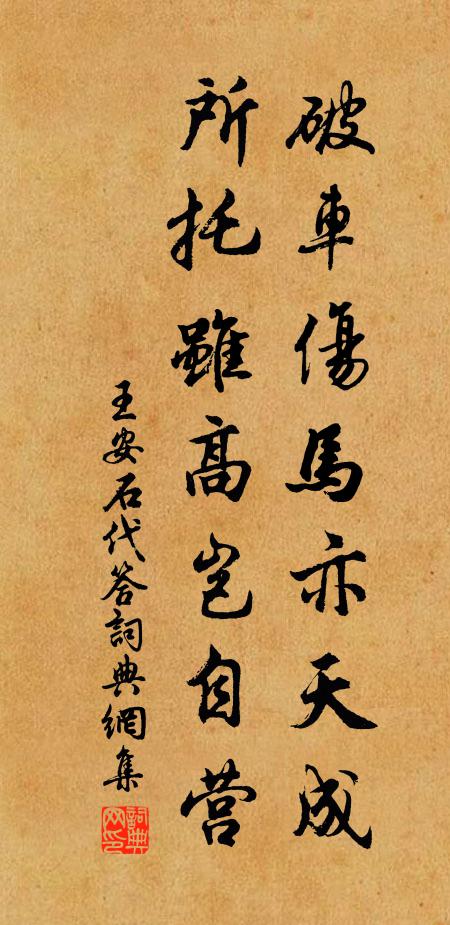 破車傷馬亦天成
所托雖高岂自营
王安石代答詞典網集
詞典网印